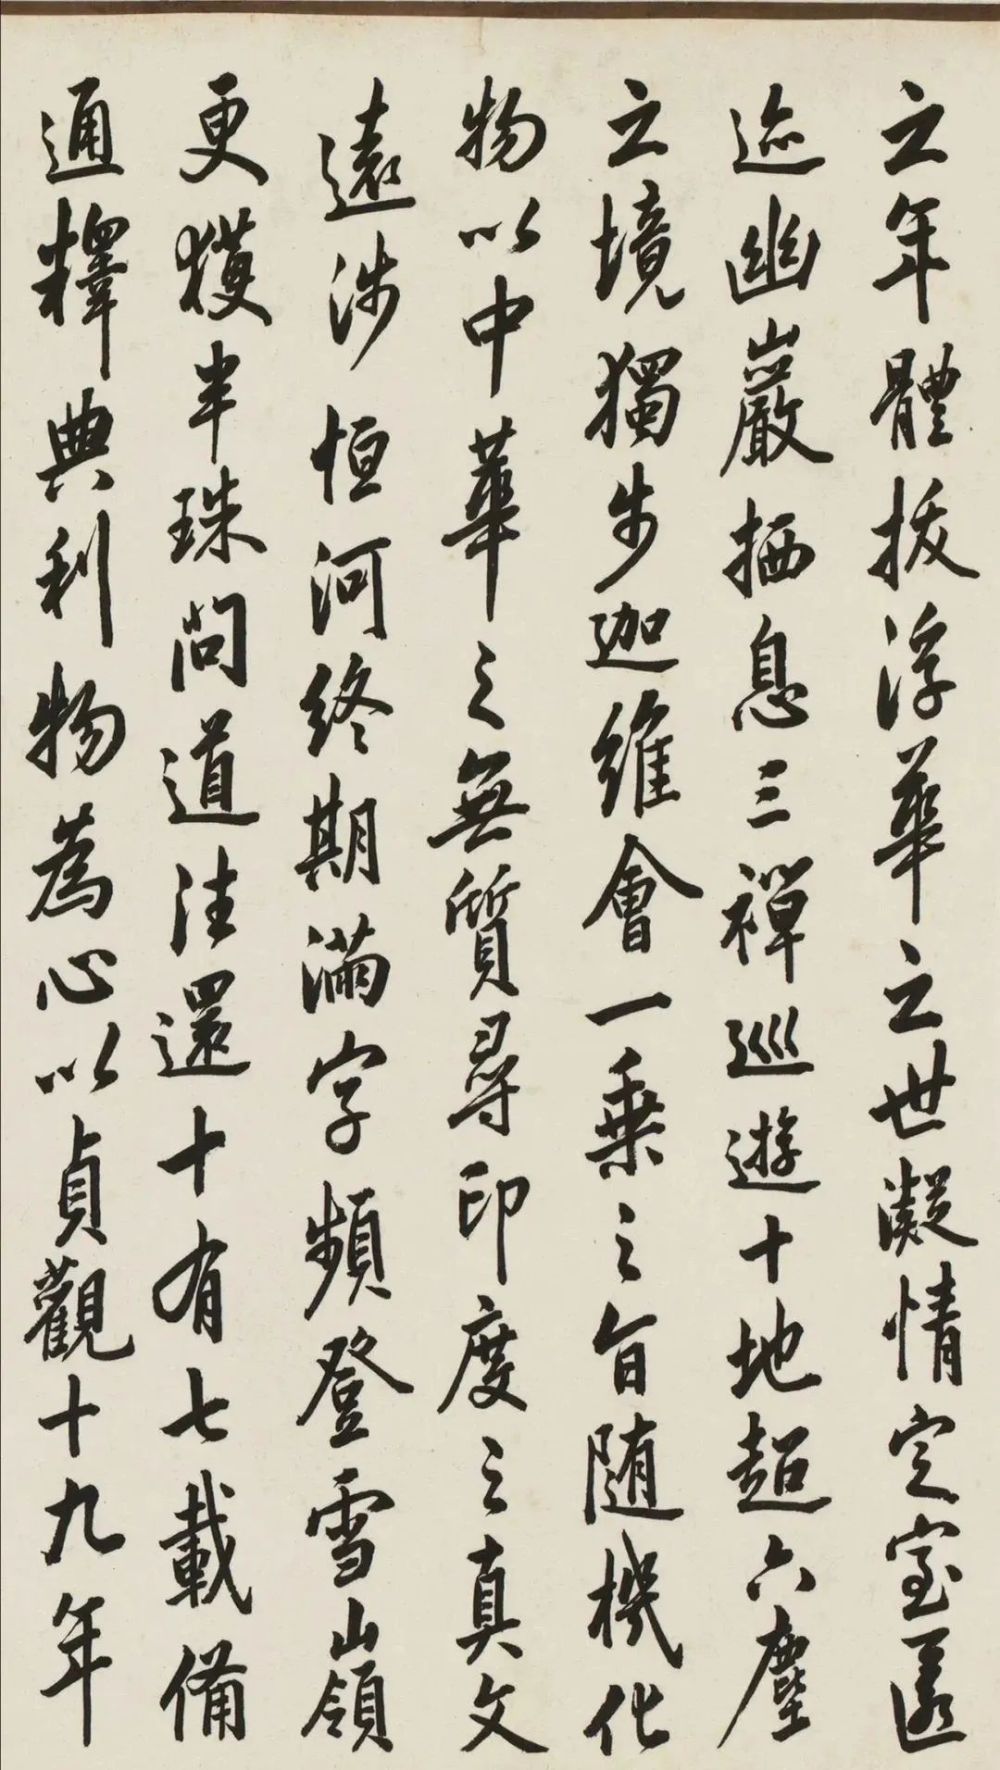 之年體拔浮華之世凝情定室匿
迹幽巖栖息三禪巡遊十地超六塵
之境獨步迦維會一乘之旨随機化
物以中華之無質尋印度之真文
遠涉恒河終期滿字頻登雪嶺
更獲半珠問道法還十有七載備
通釋典利物為心以貞觀十九年